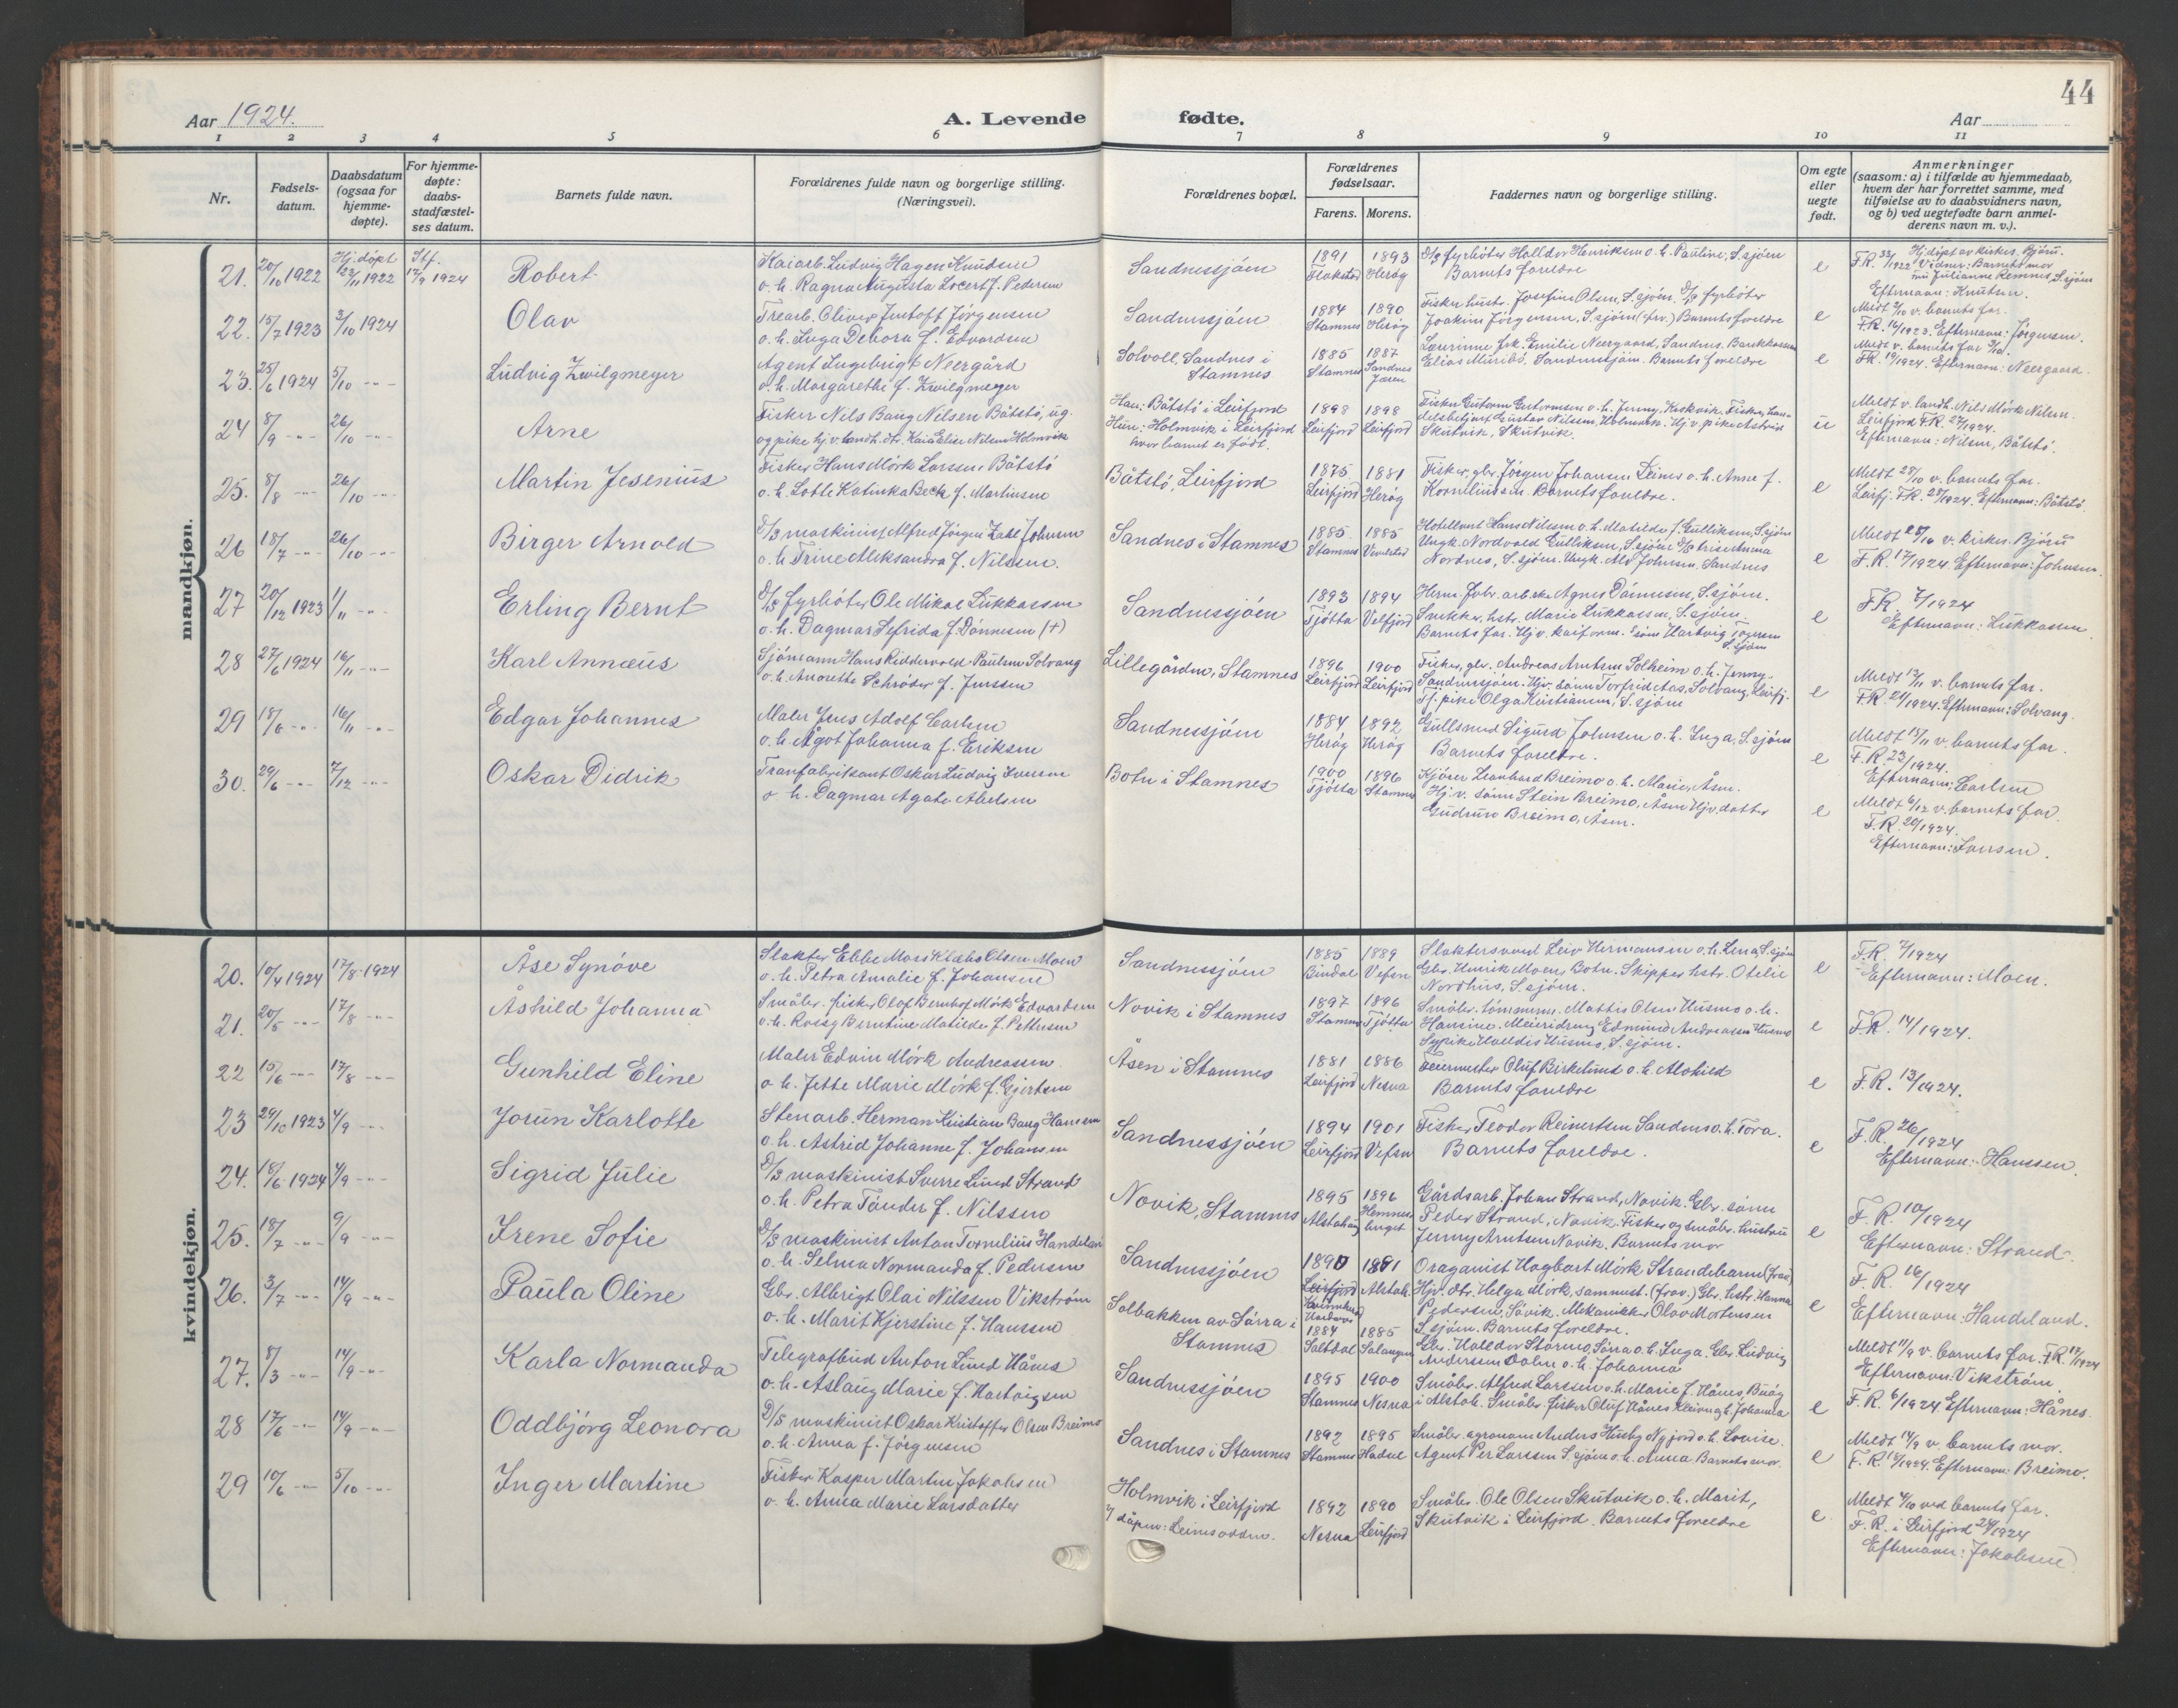 44
Aar 1924.
A. Levende
fødte.
Aar
1 2 3 4 5 6 7 8 9 10 11
Nr.
Fødsels-
datum.
Daabsdatum
(ogsaa for
hjemme-
døpte).
For hjemme-
døpte:
daabs-
stadfæstel-
ses datum.
Barnets fulde navn.
Forældrenes fulde navn og borgerlige stilling.
(Næringsvei).
Forældrenes bopæl.
Forældrenes
fødselsaar.
Farens. Morens.
Faddernes navn og borgerlige stilling.
Om egte
eller
uegte
født.
Anmerkninger
(saasom: a) i tilfælde av hjemmedaab,
hvem der har forrettet samme, med
tilføielse av to daabsvidners navn,
og b) ved uegtefødte barn anmel-
derens navn m. v.).
mandkjøn.
21. 20/10 1922 Hj.døpt 1922 Stf. 17/9 1924 Robert
Kaiarb. Ludvig Hagen Knudsen
o. h. Ragna Augusta f. Pedersen
Sandnessjöen
1891 1893
Flakstad Herøg
D/S fyrbøter Halldor Henriksen o. h. Pauline, S.sjöen
Barnets foreldre
e
Hj. døpt av kirkes. Björu.
Vidner: Barnets mor
Julianne Remnes S.sjöen
Efternavn: Knutsen.
22. 15/7 1923 3/10 1924 Olav
Trearb. Oliver Jörgensen
o. h. Inga Debora f. Edvardsen
Sandnessjöen
1884 1890
Stamnes Herøg
Fisker hustr. Josefine Olsen, S.sjöen. D/S fyrbøter
Joakim Jörgensen, S.sjöen (frv.) Barnets foreldre
e
Meldt 2/10 v. barnets far.
F.R. 16/1923. Efternavn: Jörgensen.
23. 25/6 1924 5/10 -"- Ludvig Zwilgmeyer
Agent Ingebrigt Neergård
o. h. Margarethe f. Zwilgmeyer
Solvoll, Sandnes i
Stamnes
1885 1887
Stamnes Sandnes
Jæren
Lærerinne frk. Emilie Neergaard, Sandnes.
Elias Sandnessjöen. Barnets foreldre
e
Meldt v. barnets far
F.R. 19/1924. Efternavn: Neergaard.
24 8/9 -"- 26/10 -"- Arne
Fisker Nils Bang Nilsen Båtstö, ug.
og pike hj.v. landh. dtr. Kaia Elise Nilsen Holmvik
Han: Båtstö i Leirfjord
Hun: Holmvik i Leirfjord
hvor barnet er født.
1898 1898
Leirfjord Leirfjord
Fisker Gutorm Gutormsen o. h. Jenny,
Gustav Nilssen, Holmvik. Hj.v. pike Astrid
Skutvik, Skutvik.
u
Meldt v. landh. Nils Mörk Nilsen.
Leirfjord F.R. 27/1924.
Efternavn: Nilsen, Båtstö.
25. 8/8 -"- 26/10 -"- Martin Jesenius
Fisker Hans Mörk Larssen Båtstö
o. h. Lotte Katinka Beck f. Martinsen
Båtstö, Leirfjord
1875 1881
Leirfjord Herøg
Fisker, gbr. Jörgen Johansen Leines o. h. Anne f.
Korneliussen. Barnets foreldre.
e
Meldt 28/10 v. barnets far.
Leirfj. F.R. 28/1924. Efternavn: Båtstö.
26 18/7 -"- 26/10 -"- Birger Arnold
D/S maskinist Alfred Jörgen Zahl Johnsen
o. h. Trine Aleksandra f. Nilssen.
Sandnes i Stamnes
1885 1885
Stamnes
Hotellvert Hans Nilssen o. h. Matilde f. Gulliksen, S.sjöen
Ungk. Nordvald Gulliksen, S.sjöen D/S Anna
Nordnes, S.sjöen. Ungk. Alf Johnsen, Sandnes
e
Meldt 28/10 v. kirkes. Björu
F.R. 17/1924. Efternavn: Johnsen.
27 20/12 1923 1/11 -"- Erling Bernt
D/S fyrbøter Ole Mikal Lukkassen
o. h. Dagmar Sefrida f. Dönnesen (+)
Sandnessjöen
1893 1894
Tjötta Velfjord
Herm. fabr. arb.ske Agnes Dönnesen, S.sjöen.
Snekker hstr. Marie Lukkassen, S.sjöen.
Barnets far. Hjv. kaiform. sönn Hartvig
S.sjöen
e
F.R. 7/1924
Efternavn: Lukkassen
28 27/6 1924 16/11 -"- Karl Annæus
Sjömann Hans Riddervold Paulsen Solvang
o. h. Anorette Schröder f. Jenssen
Lillegården, Stamnes
1896 1900
Leirfjord Leirfjord
Fisker, gbr. Andreas Arntsen Solheim o. h. Jenny,
Sandnessjöen. Hjv. sönn Torfrid Aas, Solvang, Leirfj.
Tj. pike Olga Kristiansen, S.sjöen
e
Meldt 13/11 v. barnets far.
F.R. 21/1924. Efternavn: Solvang.
29 18/6 -"- 16/11 -"- Edgar Johannes
Maler Jens Adolf Carlsen
o. h. Ågot Johanna f. Eriksen
Sandnessjöen
1884 1892
Herøg Herøg
Gullsmed Sigurd Johnsen o. h. Inga, S.sjöen
Barnets foreldre.
e
Meldt 15/11 v. barnets far.
F.R. 23/1924.
Efternavn: Carlsen
30. 29/6 -"- 7/12 -"- Oskar Didrik
Tranfabrikant Oskar Ludvig Iversen
o. h. Dagmar Agate Abelsen
Botn i Stamnes
1900 1896
Tjötta Stamnes
Kjörer Leonhard Breimo o. h. Marie, Åsen.
Hj.v. sönn Stein Breimo, Åsen Hjv. datter
Gudrun Breimo, Åsen.
e
Meldt 6/12 v. barnets far.
F.R. 20/1924.
Efternavn: Iversen.
kvindekjøn.
20. 10/4 1924 17/8 1924 Åse Synöve
Slakter Ebbe Olsen Moen
o. h. Petra Amalie f. Johansen
Sandnessjöen
1885 1889
Bindal Vefsn
Slaktersvend Leiv Hermansen o. h. Lena, S.sjöen
Gbr. Henrik Moen, Botn. Skipper hstr. Otelie
Nordhus, S.sjöen.
e
F.R. 7/1924
Efternavn: Moen.
21. 20/5 -"- 17/8 -"- Åshild Johanna
Småbr. fisker Olof Bernhof Mörk Edvardsen
o. h. Rossy Berntine Matilde f. Pettersen
Novik i Stamnes
1897 1896
Stamnes Tjötta
Småbr. tömmerm. Mattis Olsen Husmo o. h.
Hansine. Meieridreng Edmund Andreassen Husmo
Sypike Husmo, S.sjöen.
e
F.R. 14/1924.
22 15/6 -"- 17/8 -"- Gunhild Eline
Maler Edvin Mörk Andreassen
o. h. Jette Marie Mörk f. Gjertsen
Åsen i Stamnes
1881 1886
Leirfjord Nesna
Feiermester Oluf Birkelund o. h. Alvhild
Barnets foreldre
e
F.R. 13/1924.
23 29/10 1923 7/9 -"- Jorun Karlotte
Stenarb. Herman Kristian Bang Hansen
o. h. Astrid Johanne f. Johansen
Sandnessjöen
1894 1901
Leirfjord Vefsn
Fisker Teodor Reinertsen Sandnes o. h. Tora.
Barnets foreldre.
e
F.R. 26/1924
Efternavn: Hanssen.
24. 18/6 1924 7/9 -"- Sigrid Julie
D/S maskinist Sverre Lund Strand
o. h. Petra Tönder f. Nilssen
Novik, Stamnes
1895 1896
Alstahaug Hemnes-
berget
Gårdsarb. Johan Strand, Novik. Gbr. sönn
Peder Strand, Novik. Fisker og småbr. hustru
Jenny Arntsen Novik. Barnets mor
e
F.R. 10/1924
Efternavn: Strand.
25. 18/7 -"- 9/9 -"- Irene Sofie
D/S maskinist Anton Tornelius Handeland
o. h. Selma Normanda f. Pedersen
Sandnessjöen
1890 1891
Leirfjord Alstah.
Oraganist Hagbart Mörk Strandebarm (frav.)
Hjv. dtr. Helga Mörk, sammest. (frav.) Gbr. hstr. Hanna
Pedersen, Sövik. Mekaniker Olav Mortensen
S.sjöen. Barnets foreldre.
e
F.R. 16/1924
Efternavn: Handeland.
26. 3/7 -"- 14/9 -"- Paula Oline
Gbr. Albrigt Olai Nilssen Vikström
o. h. Marit Kjerstine f. Hanssen
Solbakken av Sörra i
Stamnes
1884 1885
Saltdal Salangen
Gbr. Halvdor Stormo, Sörra o. h. Inga. Gbr. Ludvig
Anderssen Dalen o. h. Johanna
Meldt 11/9 v. barnets far. F.R. 17/1924
Efternavn: Vikström.
27. 8/3 -"- 14/9 -"- Karla Normanda
Telegrafbud Anton Lund Hånes
o. h. Aslaug Marie f. Hartvigsen
Sandnessjöen
1895 1900
Stamnes Nesna
Småbr. Alfred Larssen o. h. Marie f. Hånes,
i Alstah. Småbr. fisker Oluf Hånes o. h. Johanna
e
F.R. 6/1924. Efternavn: Hånes.
28 17/6 -"- 14/9 -"- Oddbjörg Leonora
D/S maskinist Oskar Kristoffer Olsen Breimo
o. h. Anna f. Jörgensen
Sandnes i Stamnes
1892 1895
Stamnes Hadsel
Småbr. agronom Anders Husby Nyjord o. h. Lovise.
Agent Per Larssen S.sjöen o. h. Anna Barnets mor.
e
Meldt 14/9 v. barnets mor.
F.R. 12/1924. Efternavn: Breimo.
29 10/6 -"- 5/10 -"- Inger Martine
Fisker Kasper Martin Jakobsen
o. h. Anna Marie Larsdatter
Holmvik i Leirfjord
v/ dåpen: Leinesodden.
1892 1890
Nesna Leirfjord
Småbr. Ole Olsen Skutvik o. h. Marit,
Skutvik i Leirfjord. Barnets foreldre
e.
Meldt 4/10 ved barnets far.
F.R. i Leirfjord 24/1924
Efternavn: Jakobsen